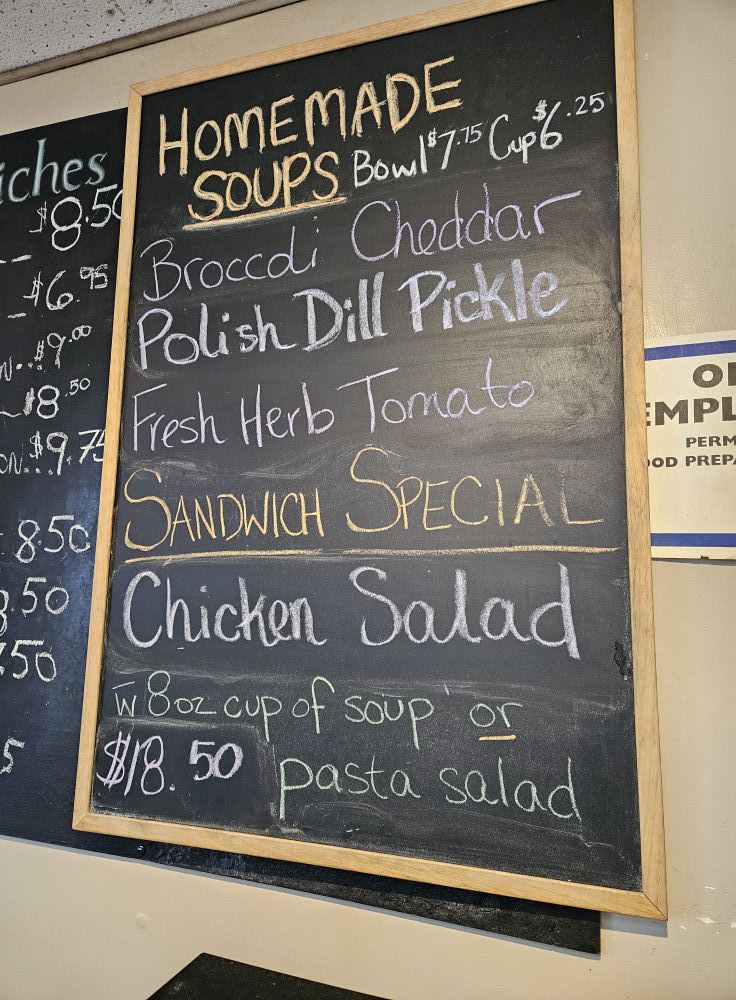 HOMEMADE
SOUPS Bowl $7.75 Cup $6.25
Broccoli Cheddar
Polish Dill Pickle
Fresh Herb Tomato
SANDWICH SPECIAL
Chicken Salad
w 8oz cup of soup or
$18.50 pasta salad
iches
$8.50
$6.95
N..$9.00
$8.50
ON...$9.75
8.50
.50
.50
5
EMPL
PERM
OOD PREPA